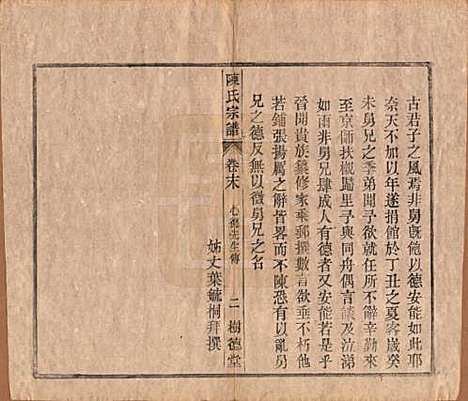 古君子之風焉非舅旣飽以德安能如此耶
奈天不加以年遂捐館於丁丑之夏客歲癸
未舅兄之季弟開子欲就任不辭辛勤來
至京師扶櫬歸里子與同舟偶言談及泣涕
如雨非舅兄肆成人有德者又安能若是乎
晉開貴族纂修家乘郵撰數言欲垂不朽他
若鋪張揚厲之辭皆畧而不陳恐有以亂舅
兄之德反無以徵舅兄之名
姊丈葉毓桐拜撰
陳氏宗譜
卷末
先生傳
二
樹德堂